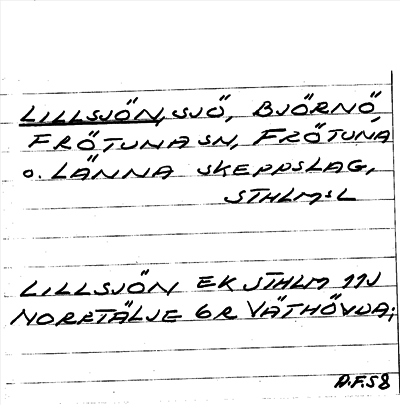 LILLSJÖN, SJÖ, BJÖRNÖ,
FRÖTUNA SN, FRÖTUNA
o. LÄNNA SKEPPSLAG,
STHLMSL
LILLSJÖN EK STHLM 11J
NORRTÄLJE 6R VÄTHÖVDA;
A.F.58